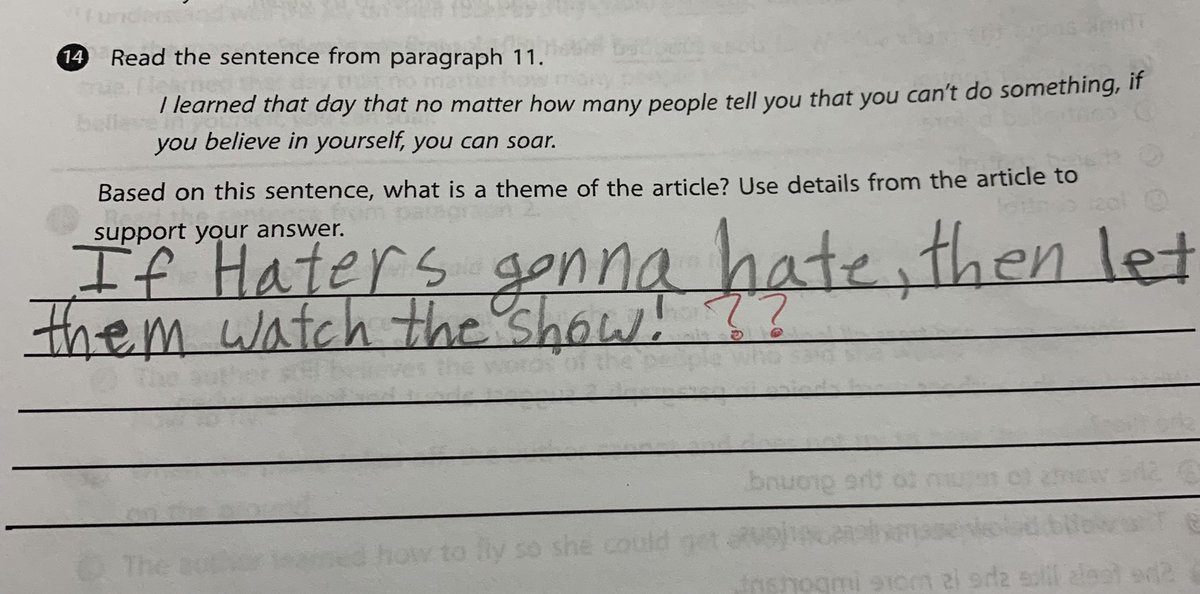 14 Read the sentence from paragraph 11.
I learned that day that no matter how many people tell you that you can't do something, if
you believe in yourself, you can soar.
Based on this sentence, what is a theme of the article? Use details from the article to
support your answer.
If Haters gonna hate, then let
them watch the show! ??